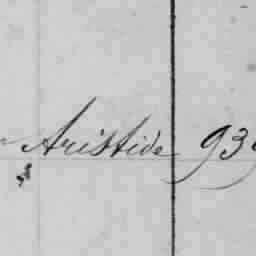 Aristide 939